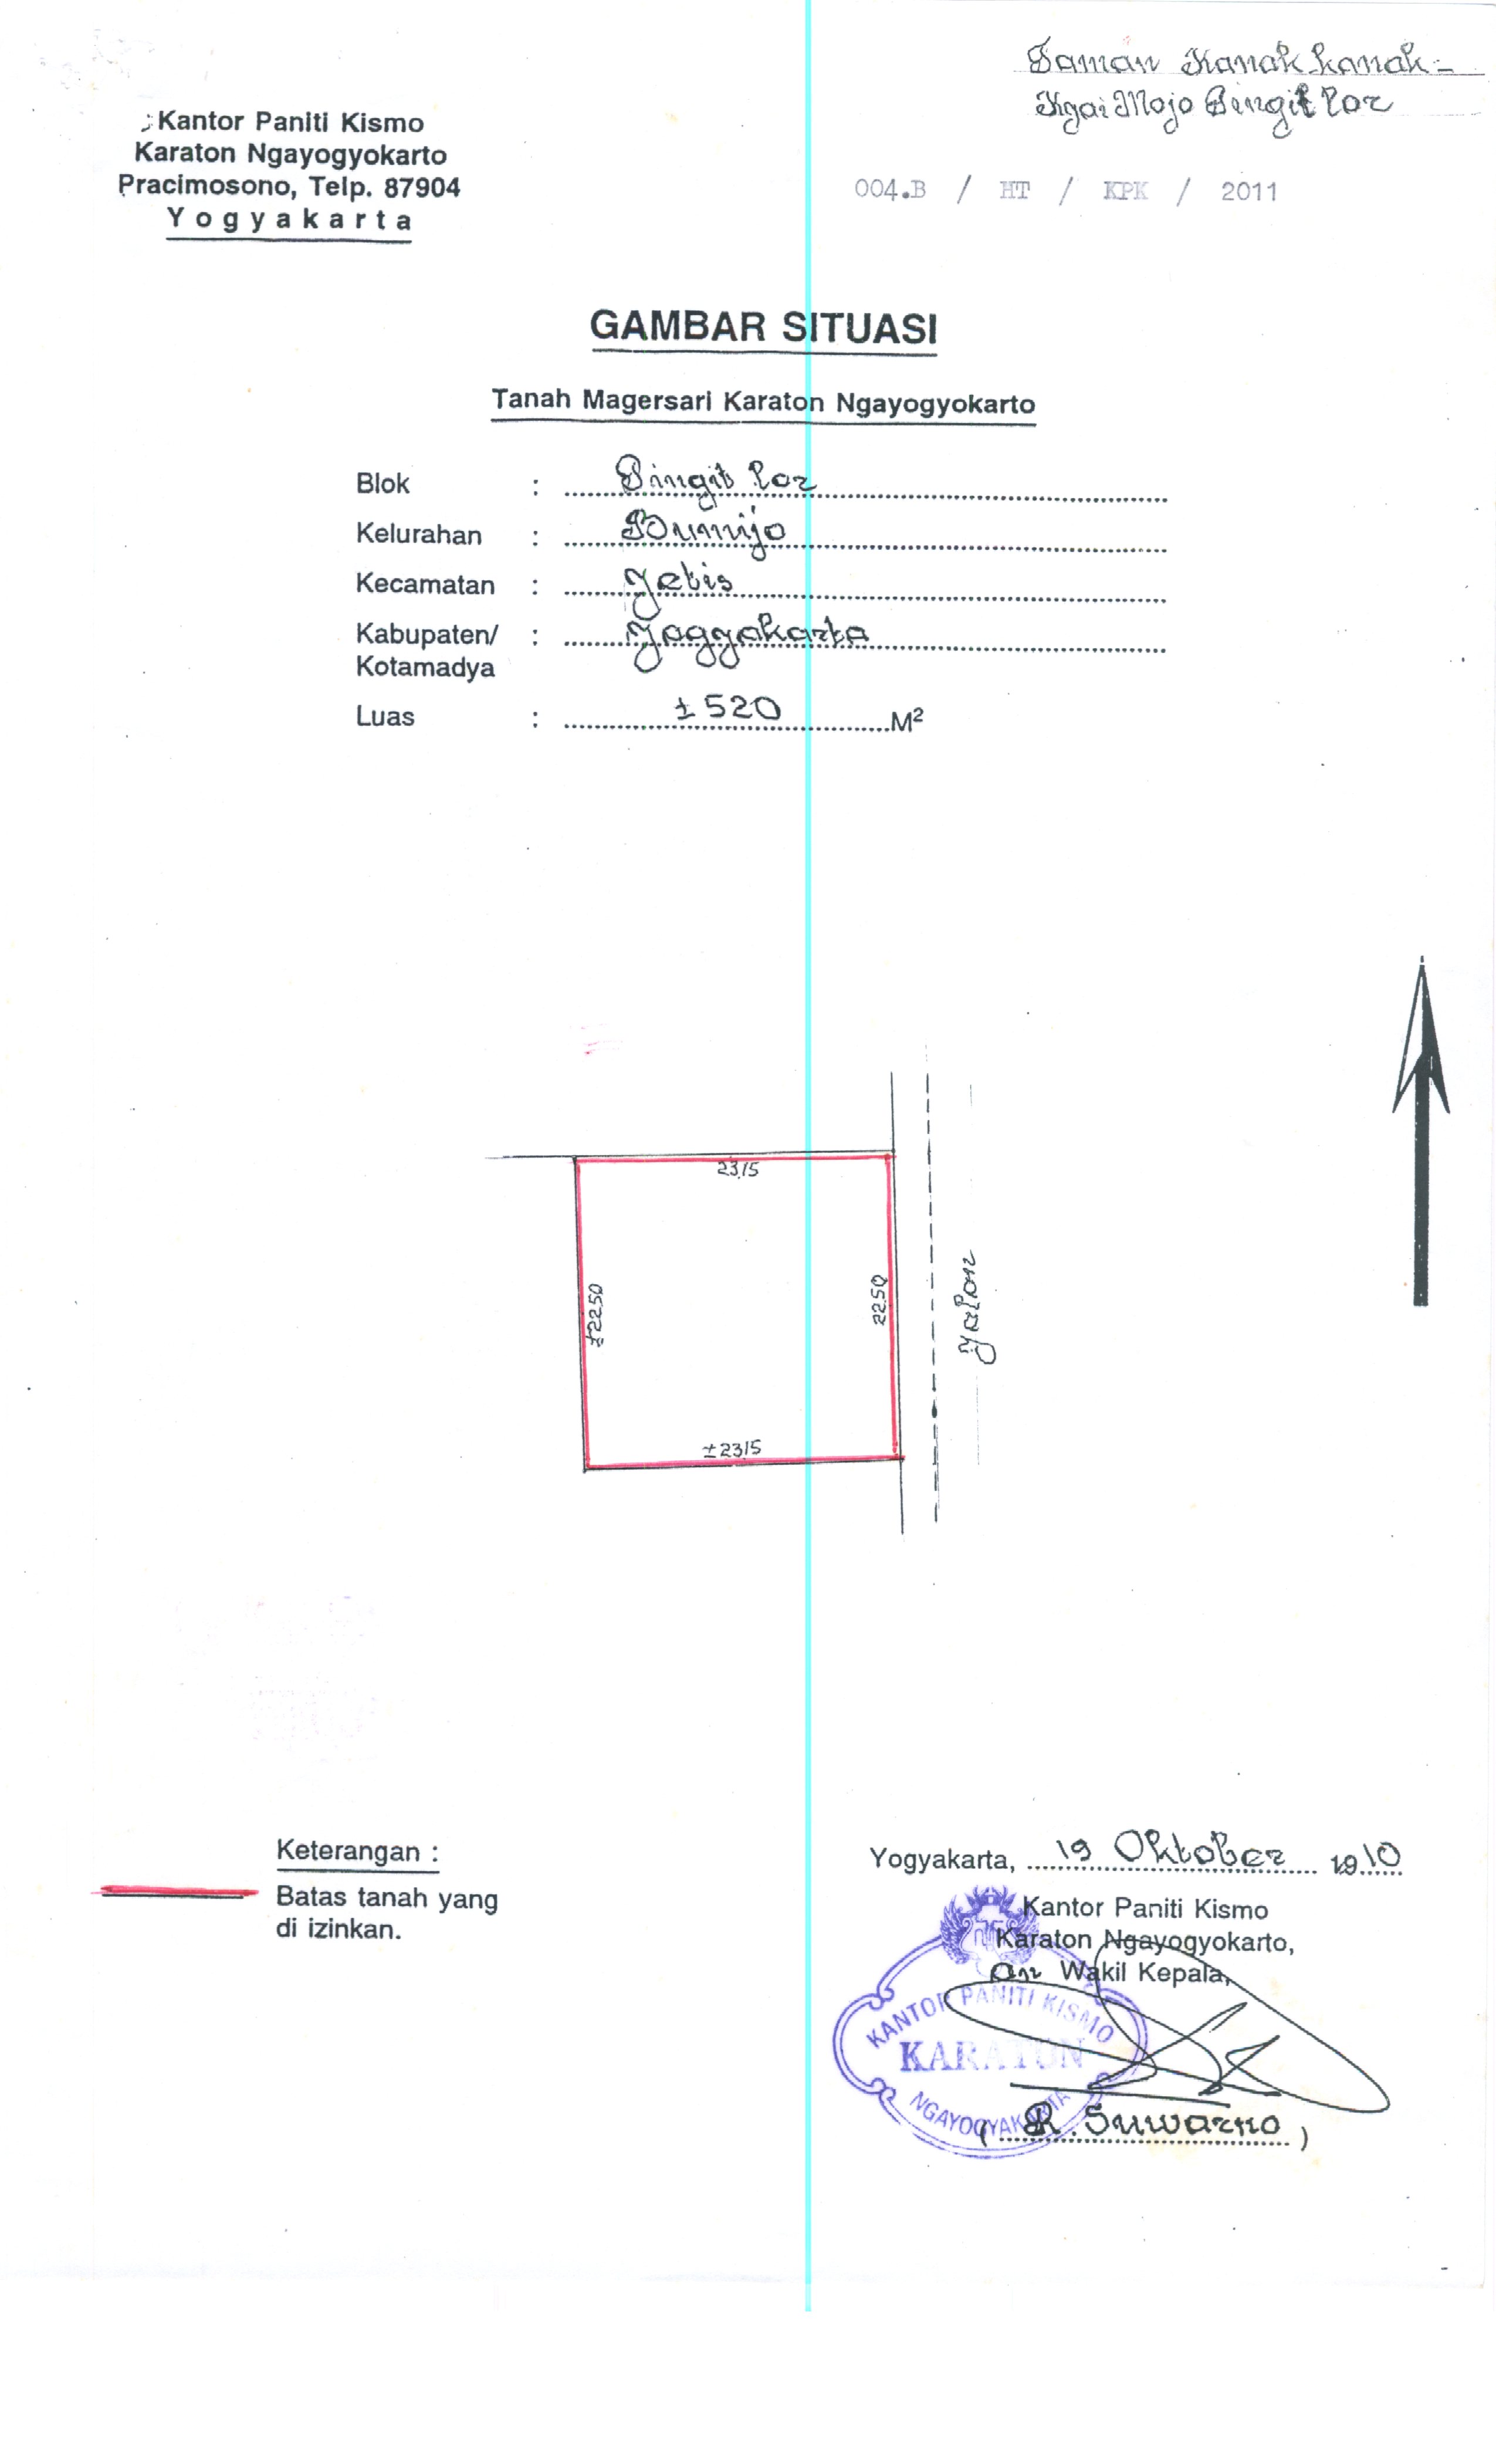 Taman Kanak kanak -
Kyai Mojo Pingit Lor
Kantor Paniti Kismo
Karaton Ngayogyokarto
Pracimosono, Telp. 87904
Yogyakarta
004.B / HT / KPK / 2011
GAMBAR SITUASI
Tanah Magersari Karaton Ngayogyokarto
Blok : Pingit Lor
Kelurahan : Bumijo
Kecamatan : Jetis
Kabupaten/ : Yogyakarta
Kotamadya
Luas : ± 520 M²
23,15
±22.50
22.50
Jalan
±23,15
Keterangan :
Batas tanah yang
di izinkan.
Yogyakarta, 19 Oktober 1910
Kantor Paniti Kismo
Karaton Ngayogyokarto,
an Wakil Kepala,
KANTOR PANITI KISMO
KARATON
NGAYOGYAKARTA
( R. Suwarno )